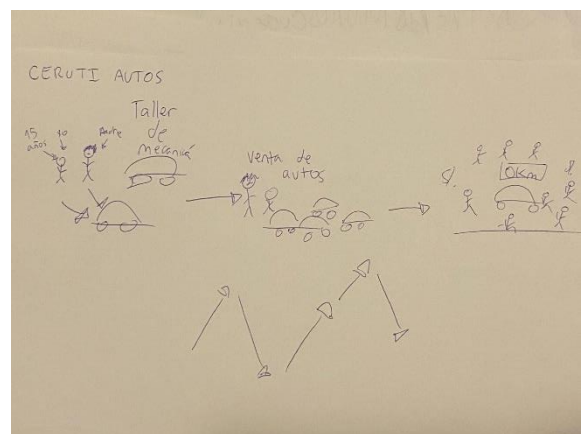 CERUTI AUTOS
15 años
yo
Padre
Taller
de
mecanica
venta de
autos
$.
0Km